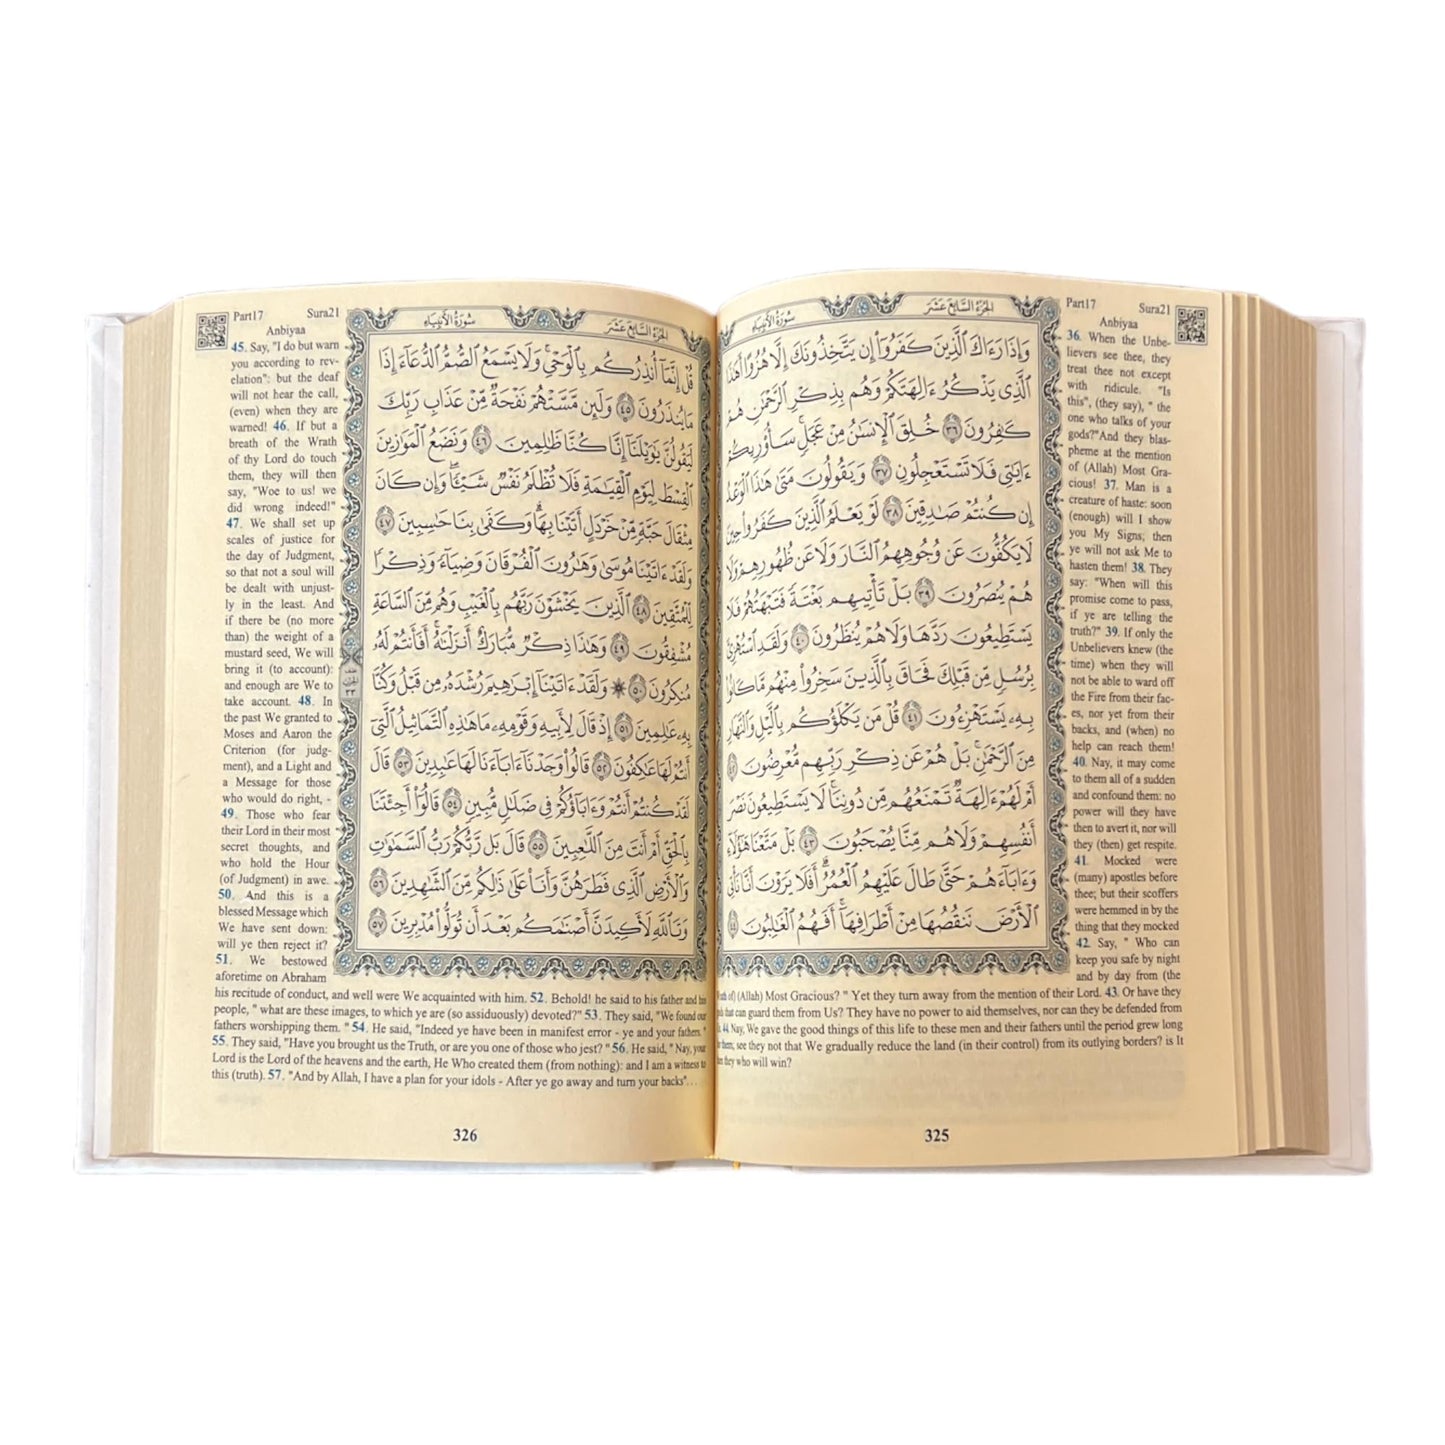 الجزء السابع عشر
سورة الأنبياء
وَإِذَا رَءَاكَ ٱلَّذِينَ كَفَرُوٓا۟ إِن يَتَّخِذُونَكَ إِلَّا هُزُوًا أَهَٰذَا
ٱلَّذِى يَذْكُرُ ءَالِهَتَكُمْ وَهُم بِذِكْرِ ٱلرَّحْمَٰنِ هُمْ
كَٰفِرُونَ ٣٦ خُلِقَ ٱلْإِنسَٰنُ مِنْ عَجَلٍ سَأُو۟رِيكُمْ
ءَايَٰتِى فَلَا تَسْتَعْجِلُونِ ٣٧ وَيَقُولُونَ مَتَىٰ هَٰذَا ٱلْوَعْدُ
إِن كُنتُمْ صَٰدِقِينَ ٣٨ لَوْ يَعْلَمُ ٱلَّذِينَ كَفَرُوا۟ حِينَ
لَا يَكُفُّونَ عَن وُجُوهِهِمُ ٱلنَّارَ وَلَا عَن ظُهُورِهِمْ وَلَا
هُمْ يُنصَرُونَ ٣٩ بَلْ تَأْتِيهِم بَغْتَةً فَتَبْهَتُهُمْ فَلَا
يَسْتَطِيعُونَ رَدَّهَا وَلَا هُمْ يُنظَرُونَ ٤٠ وَلَقَدِ ٱسْتُهْزِئَ
بِرُسُلٍ مِّن قَبْلِكَ فَحَاقَ بِٱلَّذِينَ سَخِرُوا۟ مِنْهُم مَّا كَانُوا۟
بِهِۦ يَسْتَهْزِءُونَ ٤١ قُلْ مَن يَكْلَؤُكُم بِٱلَّيْلِ وَٱلنَّهَارِ
مِنَ ٱلرَّحْمَٰنِ بَلْ هُمْ عَن ذِكْرِ رَبِّهِم مُّعْرِضُونَ ٤٢
أَمْ لَهُمْ ءَالِهَةٌ تَمْنَعُهُم مِّن دُونِنَا لَا يَسْتَطِيعُونَ نَصْرَ
أَنفُسِهِمْ وَلَا هُم مِّنَّا يُصْحَبُونَ ٤٣ بَلْ مَتَّعْنَا هَٰٓؤُلَآءِ
وَءَابَآءَهُمْ حَتَّىٰ طَالَ عَلَيْهِمُ ٱلْعُمُرُ أَفَلَا يَرَوْنَ أَنَّا نَأْتِى
ٱلْأَرْضَ نَنقُصُهَا مِنْ أَطْرَافِهَآ أَفَهُمُ ٱلْغَٰلِبُونَ ٤٤
Part17 Sura21
Anbiyaa
36. When the Unbe-
lievers see thee, they
treat thee not except
with ridicule. "Is
this", (they say), " the
one who talks of your
gods?"And they blas-
pheme at the mention
of (Allah) Most Gra-
cious! 37. Man is a
creature of haste: soon
(enough) will I show
you My Signs; then
ye will not ask Me to
hasten them! 38. They
say: "When will this
promise come to pass,
if ye are telling the
truth?" 39. If only the
Unbelievers knew (the
time) when they will
not be able to ward off
the Fire from their fac-
es, nor yet from their
backs, and (when) no
help can reach them!
40. Nay, it may come
to them all of a sudden
and confound them: no
power will they have
then to avert it, nor will
they (then) get respite.
41. Mocked were
(many) apostles before
thee; but their scoffers
were hemmed in by the
thing that they mocked
42. Say, " Who can
keep you safe by night
and by day from (the
of) (Allah) Most Gracious? " Yet they turn away from the mention of their Lord. 43. Or have they
that can guard them from Us? They have no power to aid themselves, nor can they be defended from
44. Nay, We gave the good things of this life to these men and their fathers until the period grew long
them; see they not that We gradually reduce the land (in their control) from its outlying borders? is It
they who will win?
325
الجزء السابع عشر
سورة الأنبياء
قُلْ إِنَّمَآ أُنذِرُكُم بِٱلْوَحْىِ وَلَا يَسْمَعُ ٱلصُّمُّ ٱلدُّعَآءَ إِذَا
مَا يُنذَرُونَ ٤٥ وَلَئِن مَّسَّتْهُمْ نَفْحَةٌ مِّنْ عَذَابِ رَبِّكَ
لَيَقُولُنَّ يَٰوَيْلَنَآ إِنَّا كُنَّا ظَٰلِمِينَ ٤٦ وَنَضَعُ ٱلْمَوَٰزِينَ
ٱلْقِسْطَ لِيَوْمِ ٱلْقِيَٰمَةِ فَلَا تُظْلَمُ نَفْسٌ شَيْـًٔا وَإِن كَانَ
مِثْقَالَ حَبَّةٍ مِّنْ خَرْدَلٍ أَتَيْنَا بِهَا وَكَفَىٰ بِنَا حَٰسِبِينَ ٤٧
وَلَقَدْ ءَاتَيْنَا مُوسَىٰ وَهَٰرُونَ ٱلْفُرْقَانَ وَضِيَآءً وَذِكْرًا
لِّلْمُتَّقِينَ ٤٨ ٱلَّذِينَ يَخْشَوْنَ رَبَّهُم بِٱلْغَيْبِ وَهُم مِّنَ ٱلسَّاعَةِ
مُشْفِقُونَ ٤٩ وَهَٰذَا ذِكْرٌ مُّبَارَكٌ أَنزَلْنَٰهُ أَفَأَنتُمْ لَهُۥ
مُنكِرُونَ ٥٠ ۞ وَلَقَدْ ءَاتَيْنَآ إِبْرَٰهِيمَ رُشْدَهُۥ مِن قَبْلُ وَكُنَّا
بِهِۦ عَٰلِمِينَ ٥١ إِذْ قَالَ لِأَبِيهِ وَقَوْمِهِۦ مَا هَٰذِهِ ٱلتَّمَاثِيلُ ٱلَّتِىٓ
أَنتُمْ لَهَا عَٰكِفُونَ ٥٢ قَالُوا۟ وَجَدْنَآ ءَابَآءَنَا لَهَا عَٰبِدِينَ ٥٣ قَالَ
لَقَدْ كُنتُمْ أَنتُمْ وَءَابَآؤُكُمْ فِى ضَلَٰلٍ مُّبِينٍ ٥٤ قَالُوٓا۟ أَجِئْتَنَا
بِٱلْحَقِّ أَمْ أَنتَ مِنَ ٱللَّٰعِبِينَ ٥٥ قَالَ بَل رَّبُّكُمْ رَبُّ ٱلسَّمَٰوَٰتِ
وَٱلْأَرْضِ ٱلَّذِى فَطَرَهُنَّ وَأَنَا۠ عَلَىٰ ذَٰلِكُم مِّنَ ٱلشَّٰهِدِينَ ٥٦
وَتَٱللَّهِ لَأَكِيدَنَّ أَصْنَٰمَكُم بَعْدَ أَن تُوَلُّوا۟ مُدْبِرِينَ ٥٧
نصف
الحزب
٣٣
Part17 Sura21
Anbiyaa
45. Say, "I do but warn
you according to rev-
elation": but the deaf
will not hear the call,
(even) when they are
warned! 46. If but a
breath of the Wrath
of thy Lord do touch
them, they will then
say, "Woe to us! we
did wrong indeed!"
47. We shall set up
scales of justice for
the day of Judgment,
so that not a soul will
be dealt with unjust-
ly in the least. And
if there be (no more
than) the weight of a
mustard seed, We will
bring it (to account):
and enough are We to
take account. 48. In
the past We granted to
Moses and Aaron the
Criterion (for judg-
ment), and a Light and
a Message for those
who would do right, -
49. Those who fear
their Lord in their most
secret thoughts, and
who hold the Hour
(of Judgment) in awe.
50. And this is a
blessed Message which
We have sent down:
will ye then reject it?
51. We bestowed
aforetime on Abraham
his recitude of conduct, and well were We acquainted with him. 52. Behold! he said to his father and his
people, " what are these images, to which ye are (so assiduously) devoted?" 53. They said, "We found our
fathers worshipping them. " 54. He said, "Indeed ye have been in manifest error - ye and your fathers. "
55. They said, "Have you brought us the Truth, or are you one of those who jest? " 56. He said, " Nay, your
Lord is the Lord of the heavens and the earth, He Who created them (from nothing): and I am a witness to
this (truth). 57. "And by Allah, I have a plan for your idols - After ye go away and turn your backs"...
326